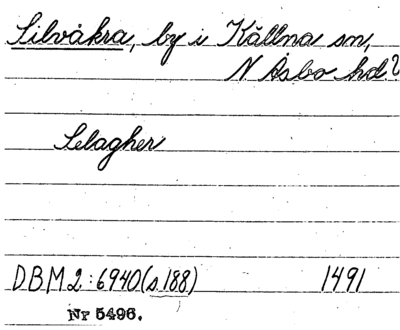 Silvåkra, by i Källna sn,
N Åsbo hd?
Selagher
DBM2:6940(s.188) 1491
Nr 5496.